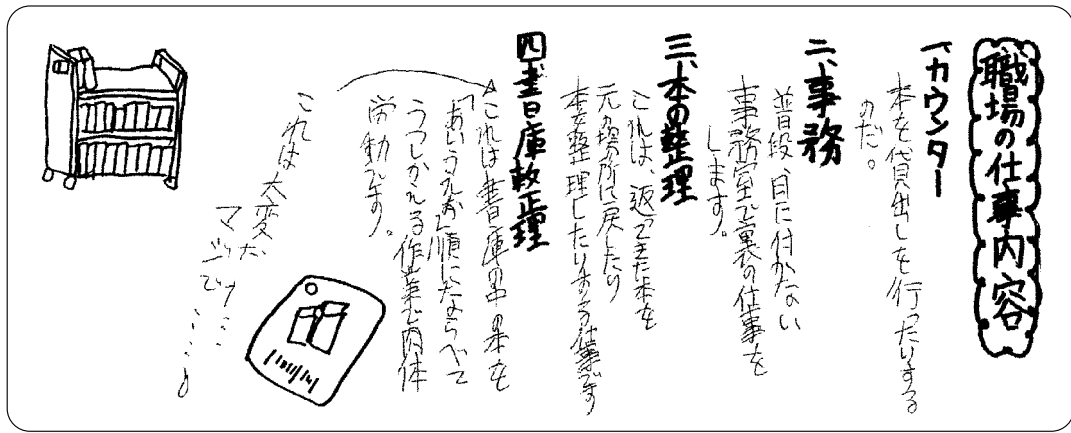 職場の仕事内容
一、カウンター
本を貸出しを行ったりする
のだ。
二、事務
普段、目に付かない
事務室で裏の仕事を
します。
三、本の整理
これは、返ってきた本を
元の場所に戻したり
本を整理したりする仕事です
四、書庫整理
これは書庫の中の本を
「あいうえお」順にならべて
うつしかえる作業で肉体
労動です。
これは大変だ
マジで……